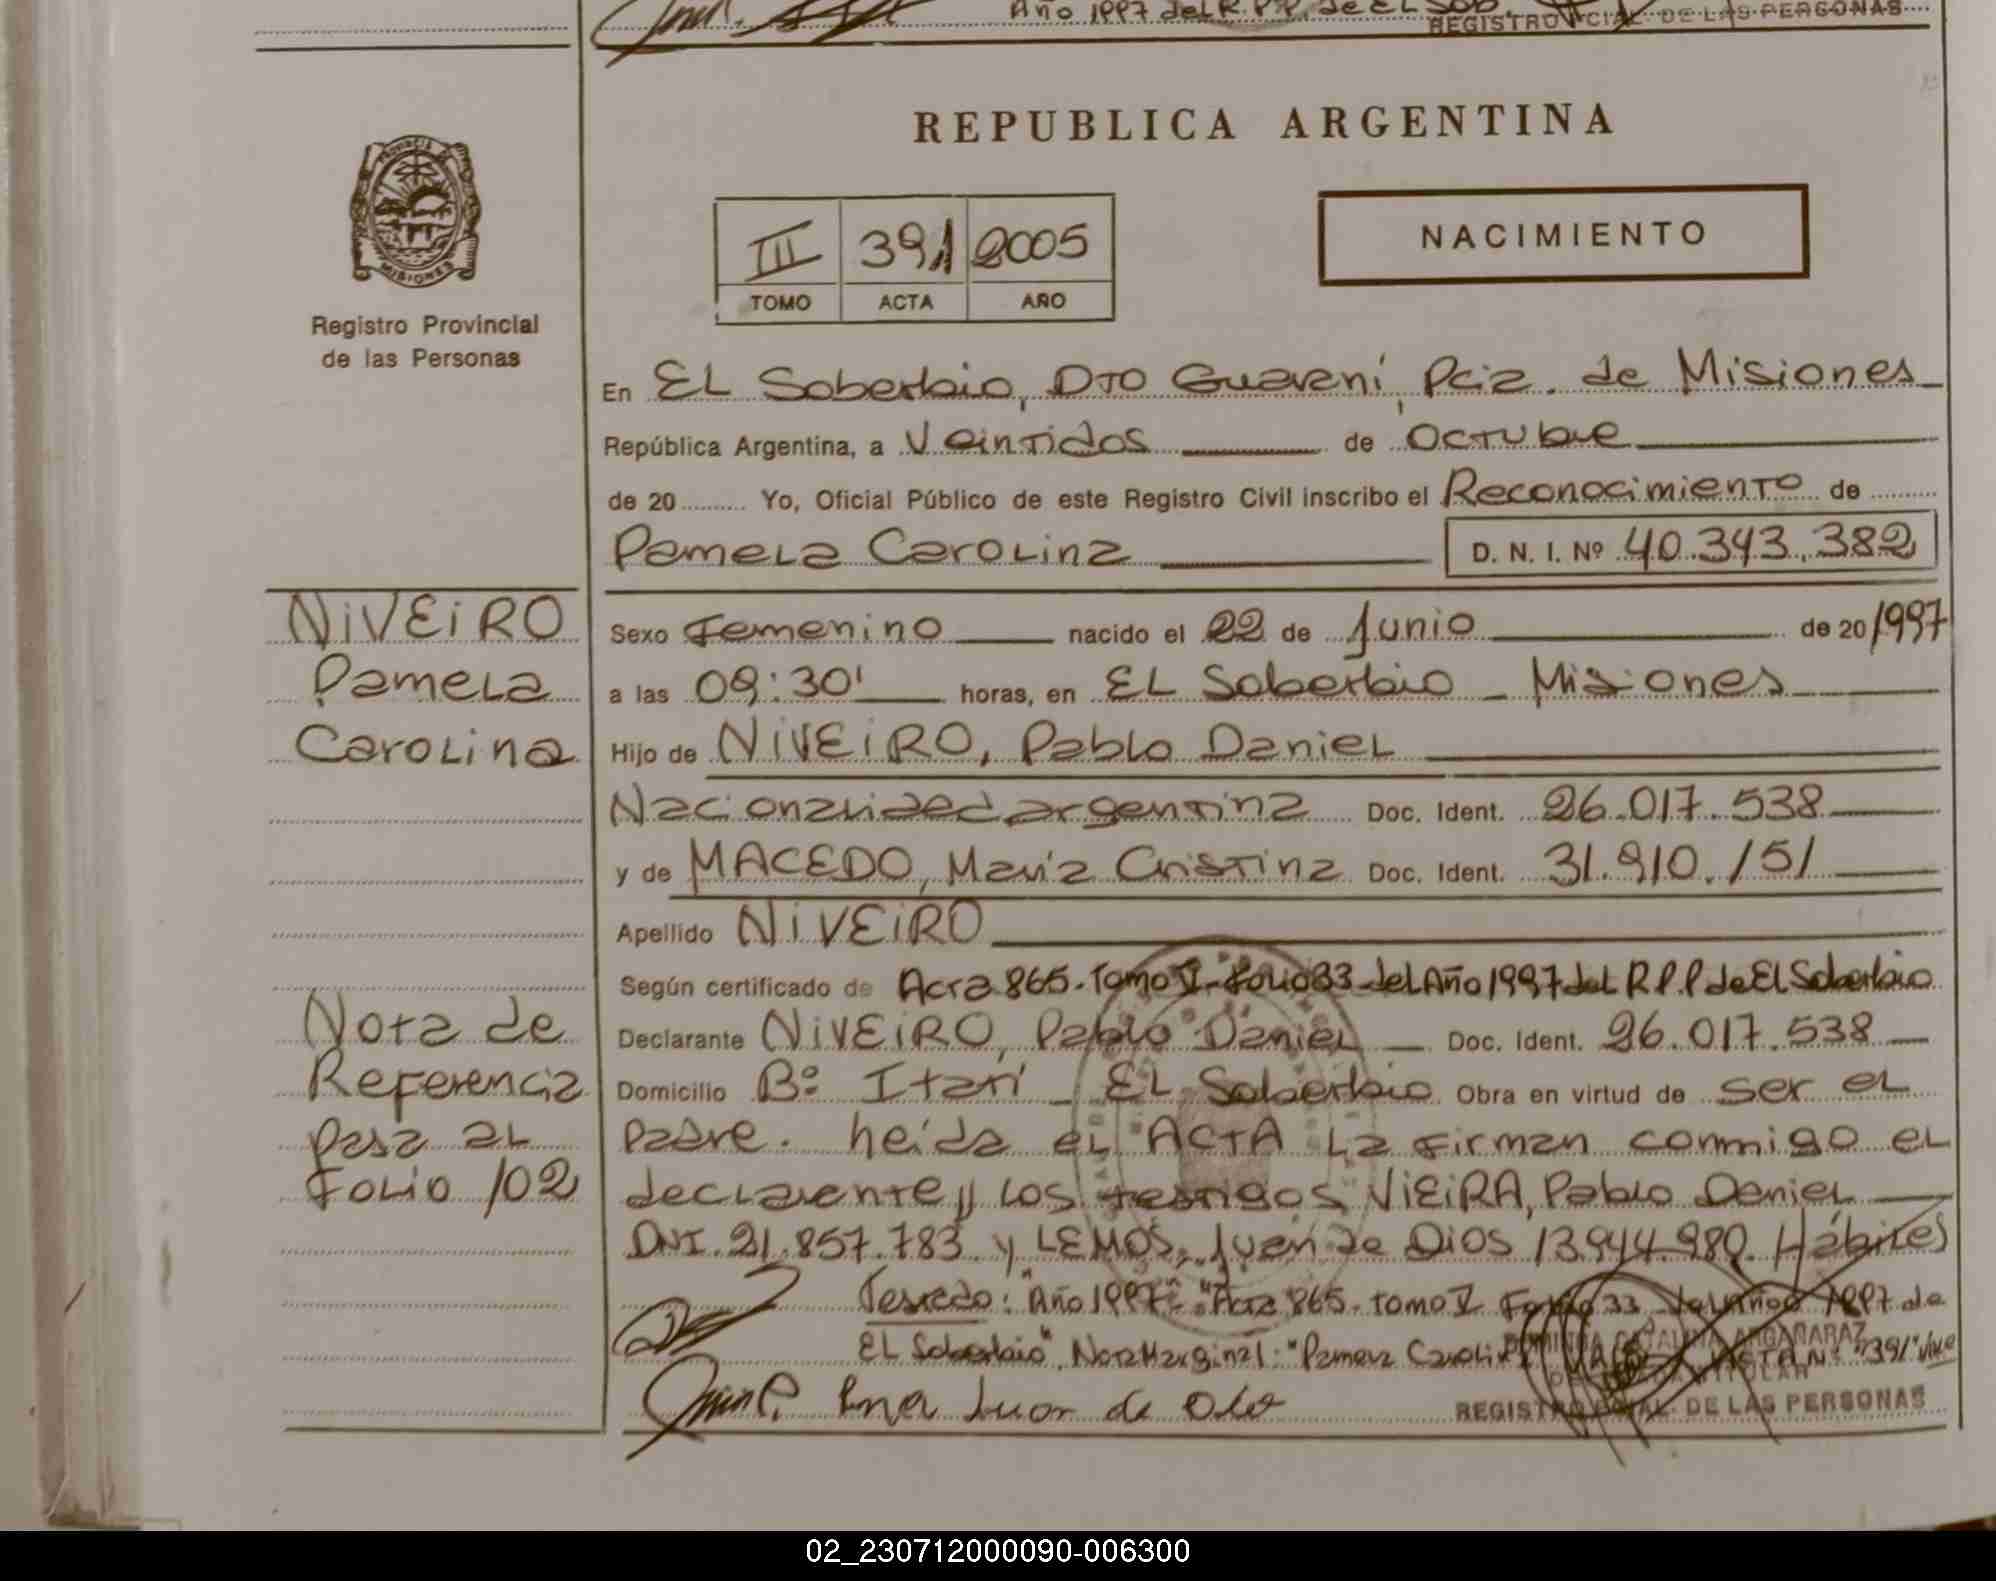 Año 1997 del R.P.P. de EL Sob.
REGISTRO PROVINCIAL DE LAS PERSONAS
REPUBLICA ARGENTINA
PROVINCIA DE
MISIONES
Registro Provincial
de las Personas
III 391 2005
TOMO ACTA AÑO
NACIMIENTO
En EL Soberbio, DTO Guaraní, Pcia. de Misiones
República Argentina, a Veintidos de Octubre
de 20 Yo, Oficial Público de este Registro Civil inscribo el Reconocimiento de
Pamela Carolina D. N. I. Nº 40.343.382
NiVEiRO
Pamela
Carolina
Sexo Femenino nacido el 22 de Junio de 20/1997
a las 09:30' horas, en EL Soberbio _ Misiones
Hijo de NiVEiRO, Pablo Daniel
Nacionalidad argentina Doc. Ident. 26.017.538
y de MACEDO, María Cristina Doc. Ident. 31.910.151
Apellido NiVEiRO
Según certificado de Acta 865. Tomo V. Folio 33 del Año 1997 del R.P.P de El Soberbio
Nota de
Referencia
pasa al
Folio 102
Declarante NiVEiRO, Pablo Daniel Doc. Ident. 26.017.538
Domicilio Bº Itatí _ EL Soberbio Obra en virtud de ser el
padre. Leída el ACTA La firman conmigo el
declarante y los testigos ViEiRA, Pablo Daniel
DNI. 21.857.783 y LEMOS, Juan de Dios 13.944.980. Hábiles
Testado: "Año 1997" "Acta 865. Tomo V Folio 33 del año 1997 de
EL Soberbio". Nota Marginal: "Pamela Carolina" ACTA Nº "391" Vale
REGISTRO PCIAL. DE LAS PERSONAS
02_230712000090-006300